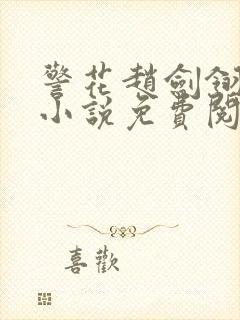 警花趙劍
小說免費閱
喜歡